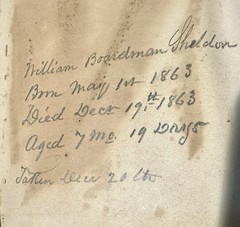 William Boardman Sheldon
Born May 1st 1863
Died Decr 19th 1863
Aged 7 Mo. 19 Days
Taken Decr 20th